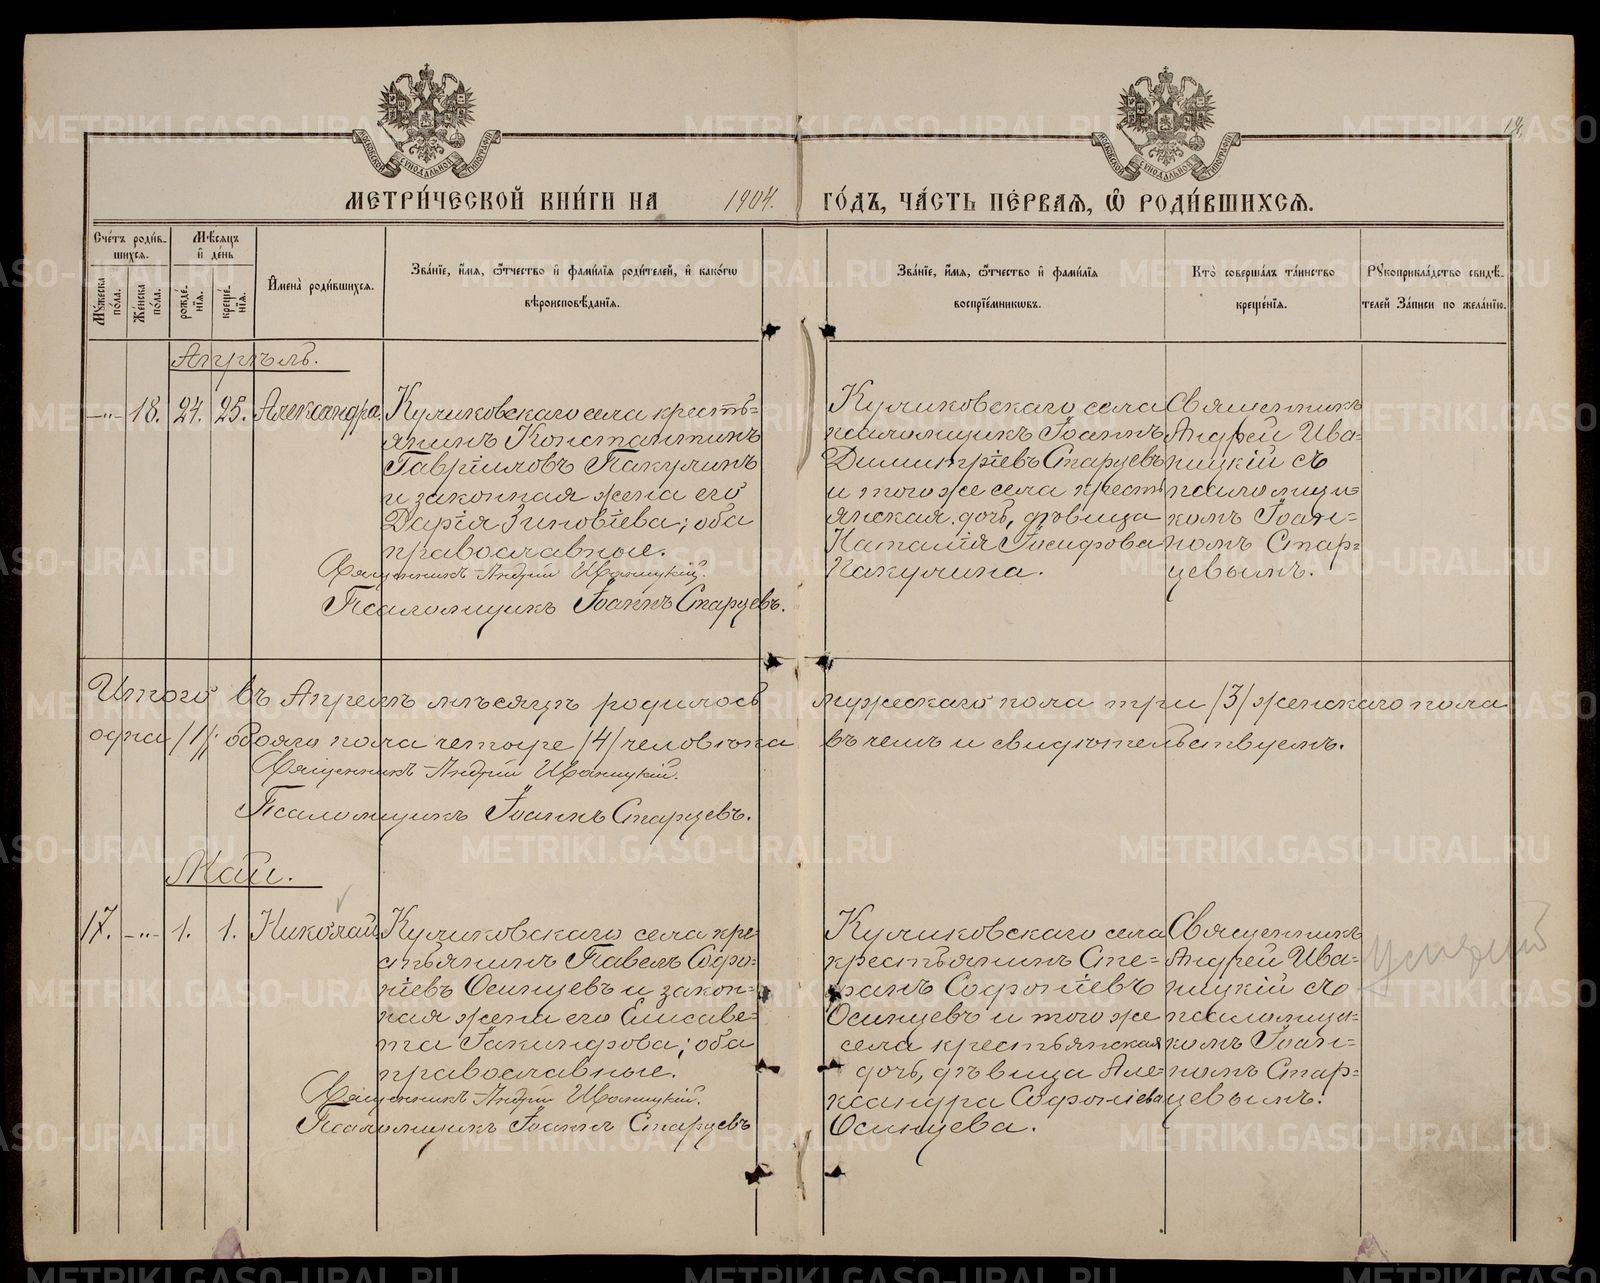 МЕТРИ́ЧЕСКОЙ КНИ́ГИ НА 1904. ГО́ДЪ, ЧА́СТЬ ПЕ́РВАѦ, Ѡ҆ РОДИ́ВШИХСѦ.
Сче́тъ роди́в-
шихсѧ.
Мꙋ́жеска по́ла.
Же́нска по́ла.
Мѣ́сѧцъ
и҆ де́нь
рожде́-
нїѧ.
креще́-
нїѧ.
И҆мена̀ роди́вшихсѧ.
Зва́нїе, и҆́мѧ, ѻ҆́тчество и҆ фами́лїѧ роди́телей, и҆ како́гѡ
вѣроисповѣ́данїѧ.
Зва́нїе, и҆́мѧ, ѻ҆́тчество и҆ фами́лїѧ
воспрїе́мникѡвъ.
Кто̀ соверша́лъ та́инство
креще́нїѧ.
Рꙋкоприкла́дство свидѣ́-
телей За́писи по жела́нїю.
Апрѣль.
—"— 18. 24. 25. Александра
Куликовскаго села кресть=
янинъ Константинъ
Гавріиловъ Пакулинъ
и законная жена его
Дарія Зиновіева; оба
православные.
Священникъ Андрей Иваницкій.
Псаломщикъ Іоаннъ Старцевъ.
Куликовскаго села
псаломщикъ Іоаннъ
Димитріевъ Старцевъ
и того же села кресть
янская дочь, дѣвица
Наталія Іосифова
Пакулина.
Священникъ
Андрей Ива-
ницкій съ
псаломщи=
комъ Іоан=
номъ Стар=
цевымъ.
Итого въ Апрелѣ мѣсяцѣ родилось мужескаго пола три /3/ женскаго пола
одна /1/; обояго пола четыре /4/ человѣка въ чемъ и свидѣтельствуемъ.
Священникъ Андрей Иваницкій.
Псаломщикъ Іоаннъ Старцевъ.
Май.
17. —"— 1. 1. Николай
Куликовскаго села кре-
стьянинъ Павелъ Софо-
ніевъ Осинцевъ и закон=
ная жена его Елисаве-
та Іакинфова; оба
православные.
Священникъ Андрей Иваницкій.
Псаломщикъ Іоаннъ Старцевъ
Куликовскаго села
крестьянинъ Сте=
фанъ Софоніевъ
Осинцевъ и того же
села крестьянская
дочь, дѣвица Але-
ксандра Софоніева
Осинцева.
Священникъ
Андрей Ива-
ницкій съ
псаломщи=
комъ Іоан=
номъ Стар=
цевымъ.
METRIKI.GASO-URAL.RU